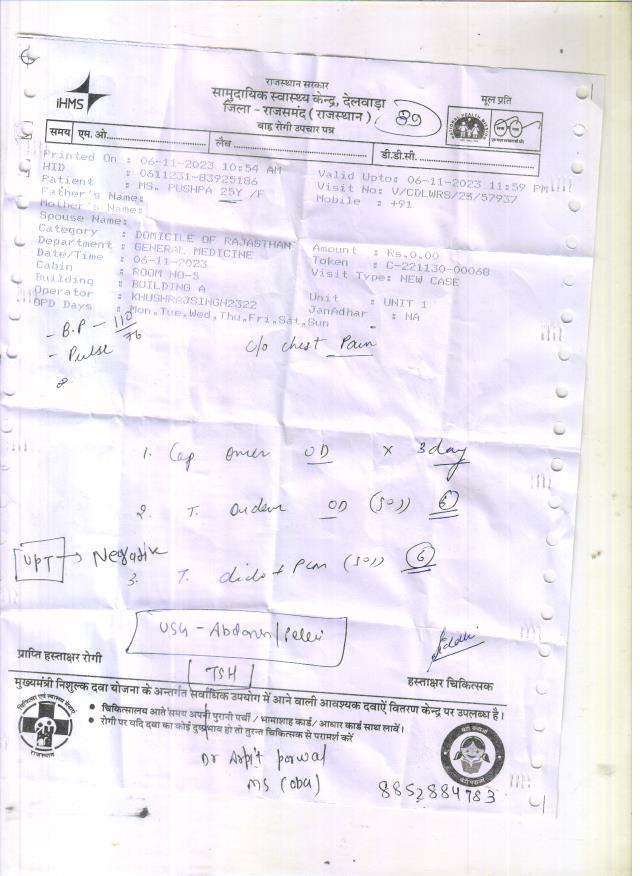 राजस्थान सरकार
सामुदायिक स्वास्थ्य केन्द्र, देलवाड़ा
जिला - राजसमंद ( राजस्थान )
बाह्य रोगी उपचार पत्र
iHMS
89
मूल प्रति
समय एम. ओ. लैब डी.डी.सी.
Printed On : 06-11-2023 10:54 AM
Valid Upto: 06-11-2023 11:59 PM
HID : 0611231-83925186
Visit No: V/CDLWRS/23/57937
Patient : MS. PUSHPA 25Y /F
Mobile : +91
Father's Name:
Mother's Name:
Spouse Name:
Category : DOMICILE OF RAJASTHAN
Amount : Rs.0.00
Department : GENERAL MEDICINE
Token : C-221130-00068
Date/Time : 06-11-2023
Visit Type: NEW CASE
Cabin : ROOM NO-5
Building : BUILDING A
Unit : UNIT 1
Operator : KHUSHRAJSINGH2322
JanAdhar : NA
OPD Days : Mon,Tue,Wed,Thu,Fri,Sat,Sun
- B.P - 110/76
- Pulse
c/o chest Pain
1. Cap omez OD x 3day
2. T. OD 6
UPT → Negative
3. T. 6
USG - 
TSH
प्राप्ति हस्ताक्षर रोगी
हस्ताक्षर चिकित्सक
मुख्यमंत्री निशुल्क दवा योजना के अन्तर्गत सर्वाधिक उपयोग में आने वाली आवश्यक दवाऐं वितरण केन्द्र पर उपलब्ध है।
• चिकित्सालय आते समय अपनी पुरानी पर्ची / भामाशाह कार्ड / आधार कार्ड साथ लावें।
• रोगी पर यदि दवा का कोई दुष्प्रभाव हो तो तुरन्त चिकित्सक से परामर्श करें
राजस्थान
Dr Arpit porwal
MS (obg)
8852884783